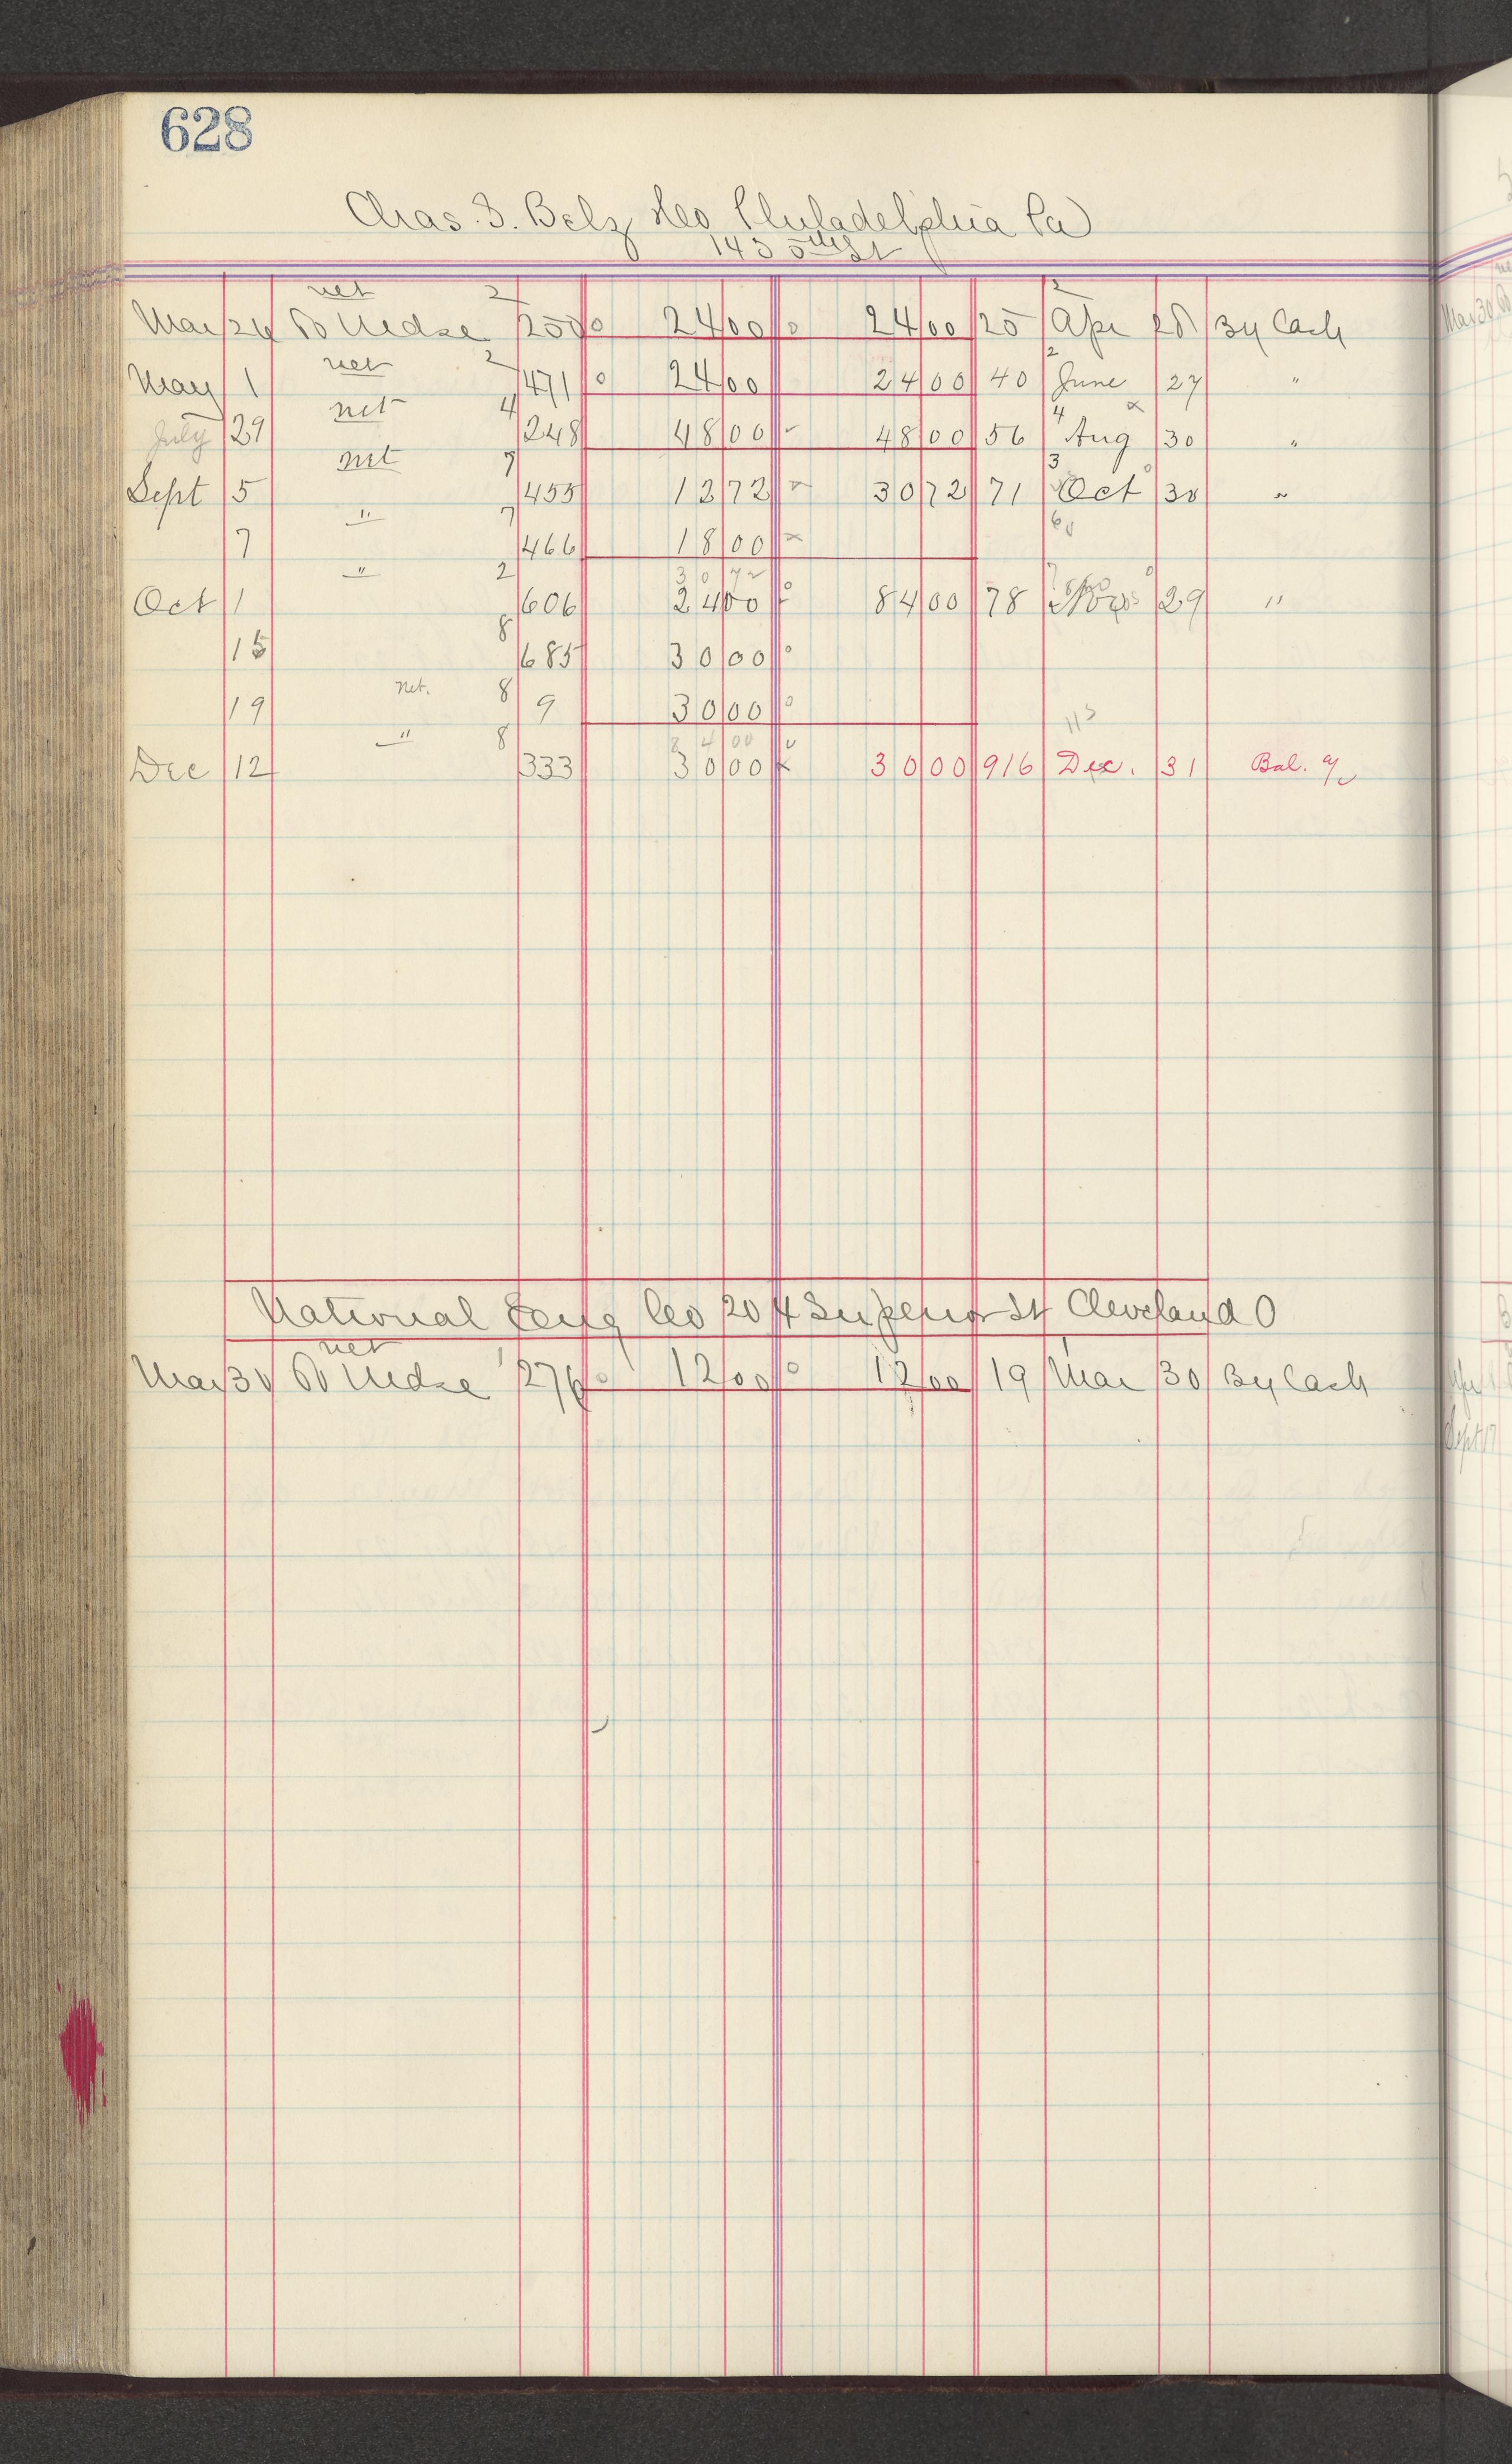 628
Chas. J. Belz Co Philadelphia Pa
143 5th St
net 2 2
Mar 24 To Mdse 250 24 00 24 00 25 Apr 28 By Cash
net 2 2
May 1 471 24 00 24 00 40 June 27 "
net 4 4
July 29 248 48 00 48 00 56 Aug 30 "
net 7 3
Sept 5 455 12 72 30 72 71 Oct 30 "
" 7
7 466 18 00
" 2 30 72
Oct 1 606 24 00 84 00 78 Nov 29 "
8
15 685 30 00
net. 8
19 9 30 00
" 8 84 00
Dec 12 333 30 00 30 00 916 Dec. 31 Bal.
National Co 204 Superior St Cleveland O
net 1
Mar 30 To Mdse 276 12 00 12 00 19 Mar 30 By Cash
Mar 30
Sept 17